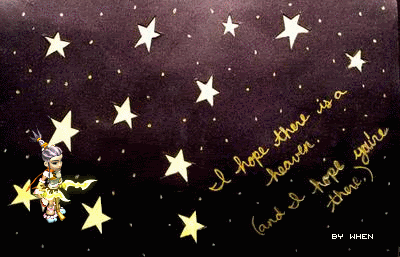 I hope there is a
heaven
(and I hope you're
there.)
BY WHEN